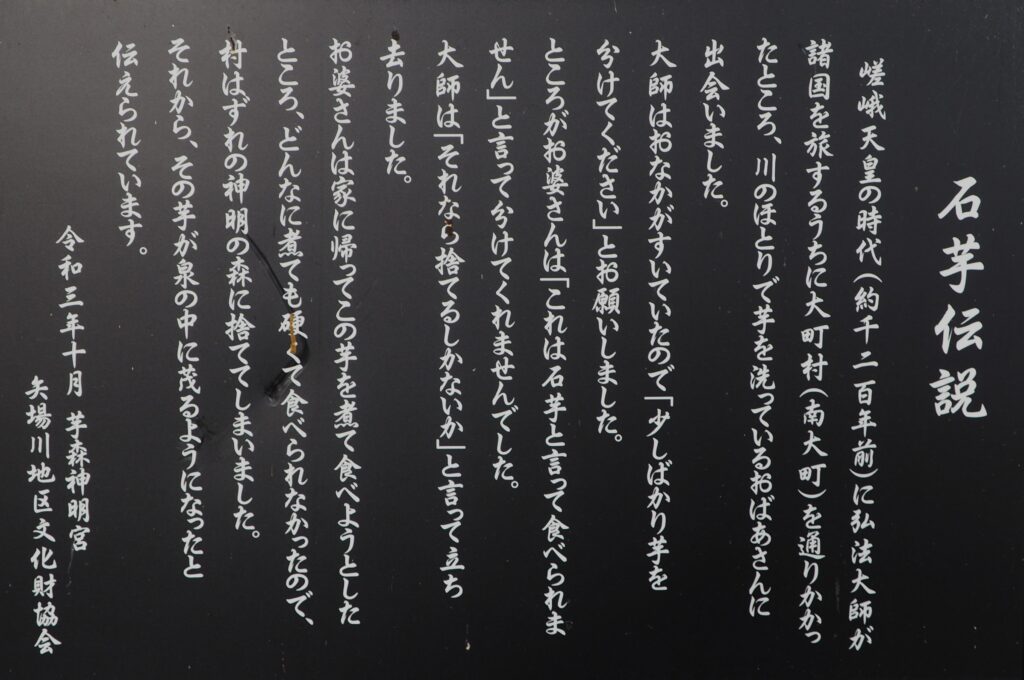 石芋伝説
嵯峨天皇の時代（約千二百年前）に弘法大師が
諸国を旅するうちに大町村（南大町）を通りかかっ
たところ、川のほとりで芋を洗っているおばあさんに
出会いました。
大師はおなかがすいていたので「少しばかり芋を
分けてください」とお願いしました。
ところがお婆さんは「これは石芋と言って食べられま
せん」と言って分けてくれませんでした。
大師は「それなら捨てるしかないか」と言って立ち
去りました。
お婆さんは家に帰ってこの芋を煮て食べようとした
ところ、どんなに煮ても硬くて食べられなかったので、
村はずれの神明の森に捨ててしまいました。
それから、その芋が泉の中に茂るようになったと
伝えられています。
令和三年十月 芋森神明宮
矢場川地区文化財協会